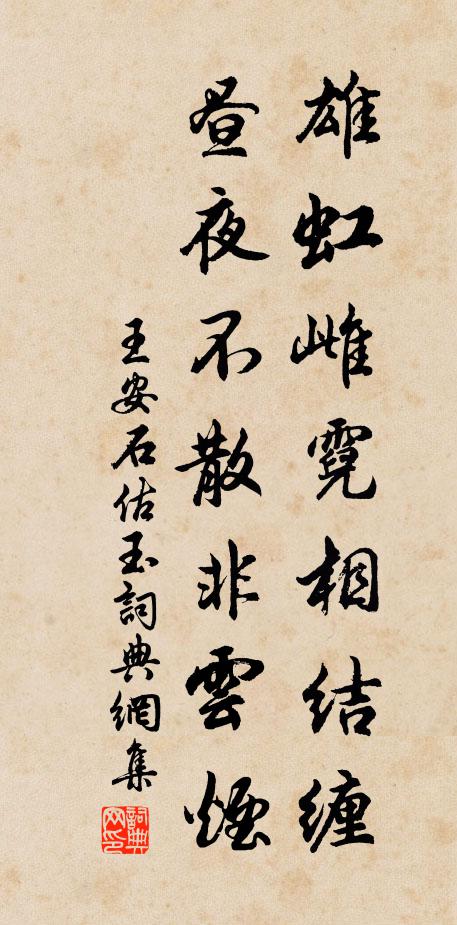 雄虹雌霓相結纏
昼夜不散非雲煙
王安石估玉詞典網集
詞典网印